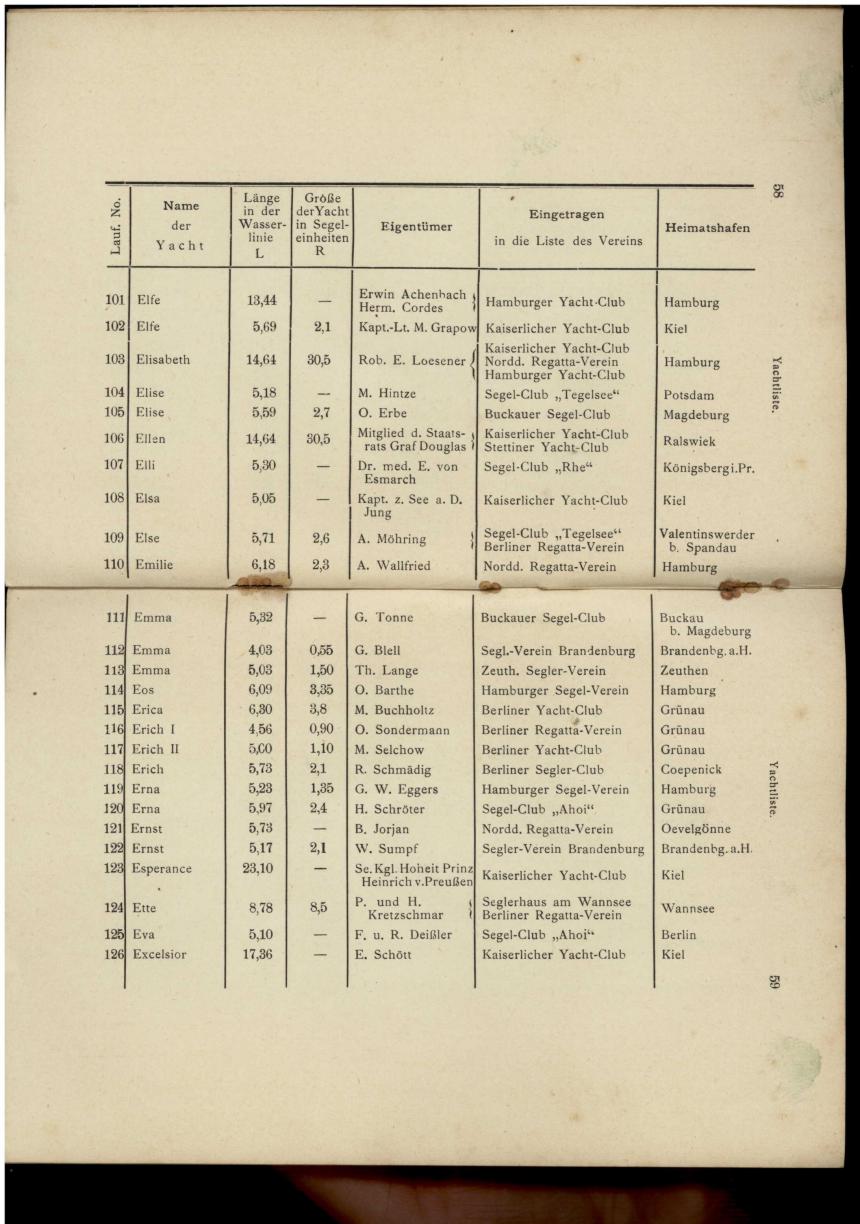 58
Yachtliste.
Lauf. No. | Name der Yacht | Länge in der Wasser-linie L | Größe der Yacht in Segel-einheiten R | Eigentümer | Eingetragen in die Liste des Vereins | Heimatshafen
101 Elfe 13,44 — Erwin Achenbach Hamburger Yacht-Club Hamburg
Herm. Cordes
102 Elfe 5,69 2,1 Kapt.-Lt. M. Grapow Kaiserlicher Yacht-Club Kiel
Kaiserlicher Yacht-Club
103 Elisabeth 14,64 30,5 Rob. E. Loesener { Nordd. Regatta-Verein Hamburg
Hamburger Yacht-Club
104 Elise 5,18 — M. Hintze Segel-Club „Tegelsee“ Potsdam
105 Elise 5,59 2,7 O. Erbe Buckauer Segel-Club Magdeburg
106 Ellen 14,64 30,5 Mitglied d. Staats- Kaiserlicher Yacht-Club Ralswiek
rats Graf Douglas Stettiner Yacht-Club
107 Elli 5,30 — Dr. med. E. von Segel-Club „Rhe“ Königsberg i.Pr.
Esmarch
108 Elsa 5,05 — Kapt. z. See a. D. Kaiserlicher Yacht-Club Kiel
Jung
109 Else 5,71 2,6 A. Möhring Segel-Club „Tegelsee“ Valentinswerder
Berliner Regatta-Verein b. Spandau
110 Emilie 6,18 2,3 A. Wallfried Nordd. Regatta-Verein Hamburg
111 Emma 5,32 — G. Tonne Buckauer Segel-Club Buckau
b. Magdeburg
112 Emma 4,03 0,55 G. Blell Segl.-Verein Brandenburg Brandenbg. a.H.
113 Emma 5,03 1,50 Th. Lange Zeuth. Segler-Verein Zeuthen
114 Eos 6,09 3,35 O. Barthe Hamburger Segel-Verein Hamburg
115 Erica 6,30 3,8 M. Buchholtz Berliner Yacht-Club Grünau
116 Erich I 4,56 0,90 O. Sondermann Berliner Regatta-Verein Grünau
117 Erich II 5,00 1,10 M. Selchow Berliner Yacht-Club Grünau
118 Erich 5,73 2,1 R. Schmädig Berliner Segler-Club Coepenick
119 Erna 5,23 1,35 G. W. Eggers Hamburger Segel-Verein Hamburg
120 Erna 5,97 2,4 H. Schröter Segel-Club „Ahoi“ Grünau
121 Ernst 5,73 — B. Jorjan Nordd. Regatta-Verein Oevelgönne
122 Ernst 5,17 2,1 W. Sumpf Segler-Verein Brandenburg Brandenbg. a.H.
123 Esperance 23,10 — Se. Kgl. Hoheit Prinz Kaiserlicher Yacht-Club Kiel
Heinrich v. Preußen
124 Ette 8,78 8,5 P. und H. Seglerhaus am Wannsee Wannsee
Kretzschmar Berliner Regatta-Verein
125 Eva 5,10 — F. u. R. Deißler Segel-Club „Ahoi“ Berlin
126 Excelsior 17,36 — E. Schött Kaiserlicher Yacht-Club Kiel
Yachtliste.
59